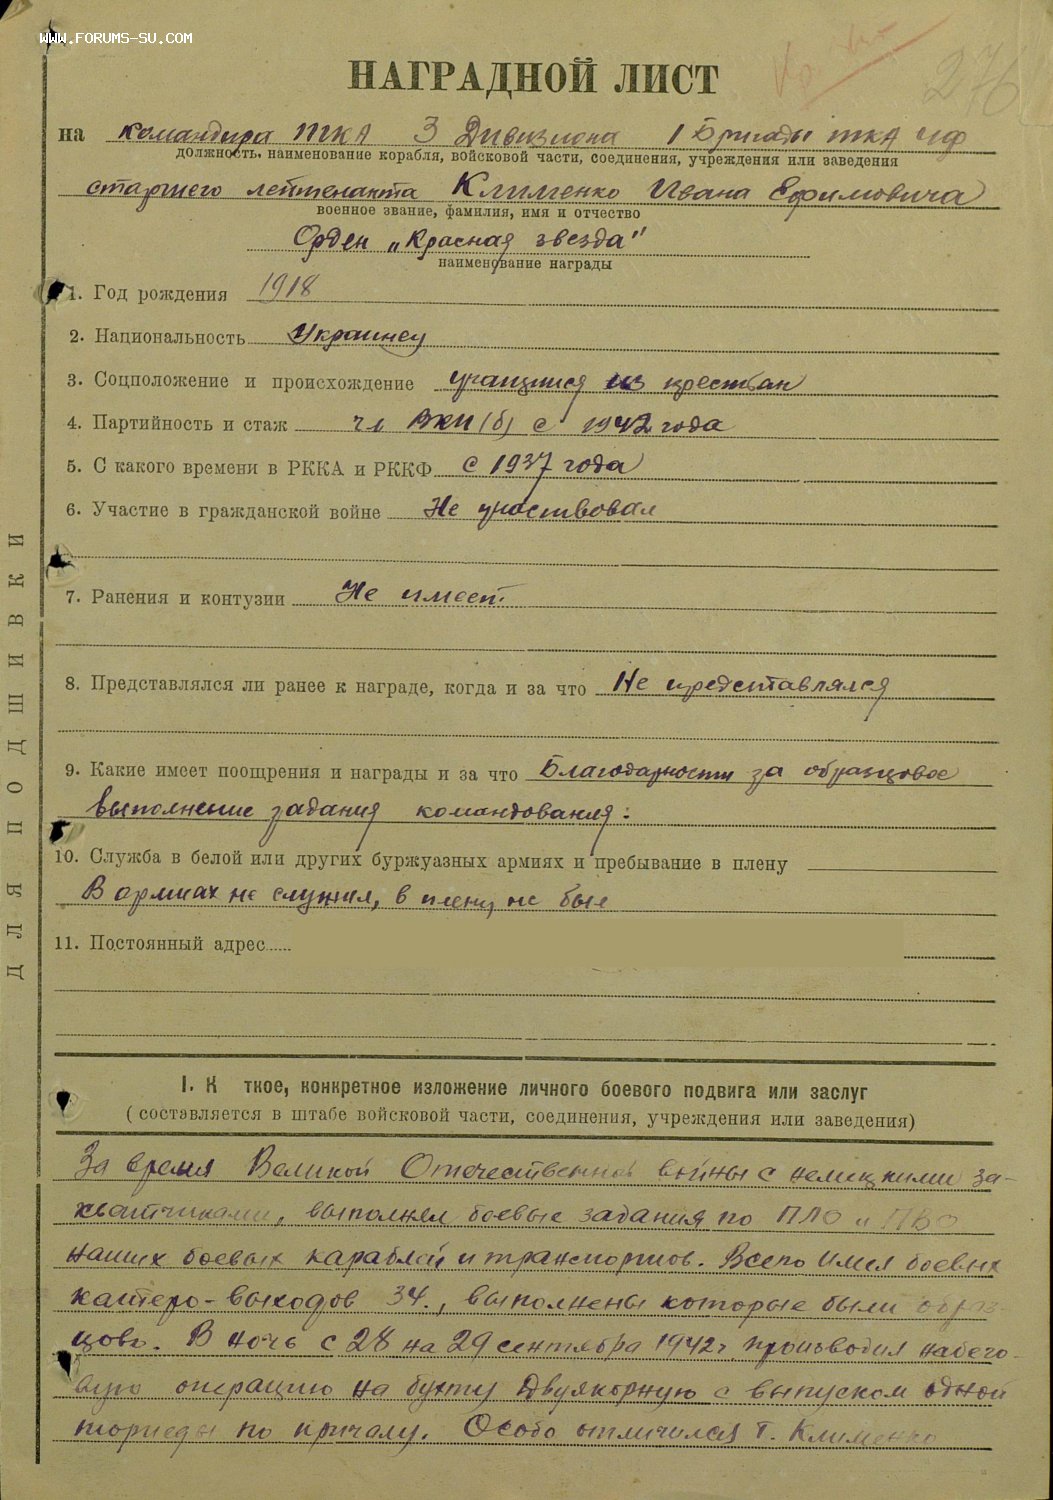 WWW.FORUMS-SU.COM
276
НАГРАДНОЙ ЛИСТ
на командира ТКА 3 Дивизиона 1 Бригады ТКА ЧФ
должность, наименование корабля, войсковой части, соединения, учреждения или заведения
старшего лейтенанта Клименко Ивана Ефимовича
военное звание, фамилия, имя и отчество
Орден „Красная звезда"
наименование награды
1. Год рождения 1918
2. Национальность Украинец
3. Соцположение и происхождение учащийся из крестьян
4. Партийность и стаж чл ВКП(б) с 1942 года
5. С какого времени в РККА и РККФ с 1937 года
6. Участие в гражданской войне Не участвовал
7. Ранения и контузии Не имеет.
8. Представлялся ли ранее к награде, когда и за что Не представлялся
9. Какие имеет поощрения и награды и за что Благодарности за образцовое
выполнение задания командования.
10. Служба в белой или других буржуазных армиях и пребывание в плену
В армиях не служил, в плену не был
11. Постоянный адрес
ДЛЯ ПОДШИВКИ
I. К ткое, конкретное изложение личного боевого подвига или заслуг
(составляется в штабе войсковой части, соединения, учреждения или заведения)
За время Великой Отечественной войны с немецкими за-
хватчиками, выполнял боевые задания по ПЛО и ПВО
наших боевых караблей и транспортов. Всего имел боевых
катеро-выходов 34., выполнены которые были образ-
цово. В ночь с 28 на 29 сентября 1942 г. производил набего-
вую операцию на бухту Двуякорную с выпуском одной
торпеды по причалу. Особо отличился т. Клименко